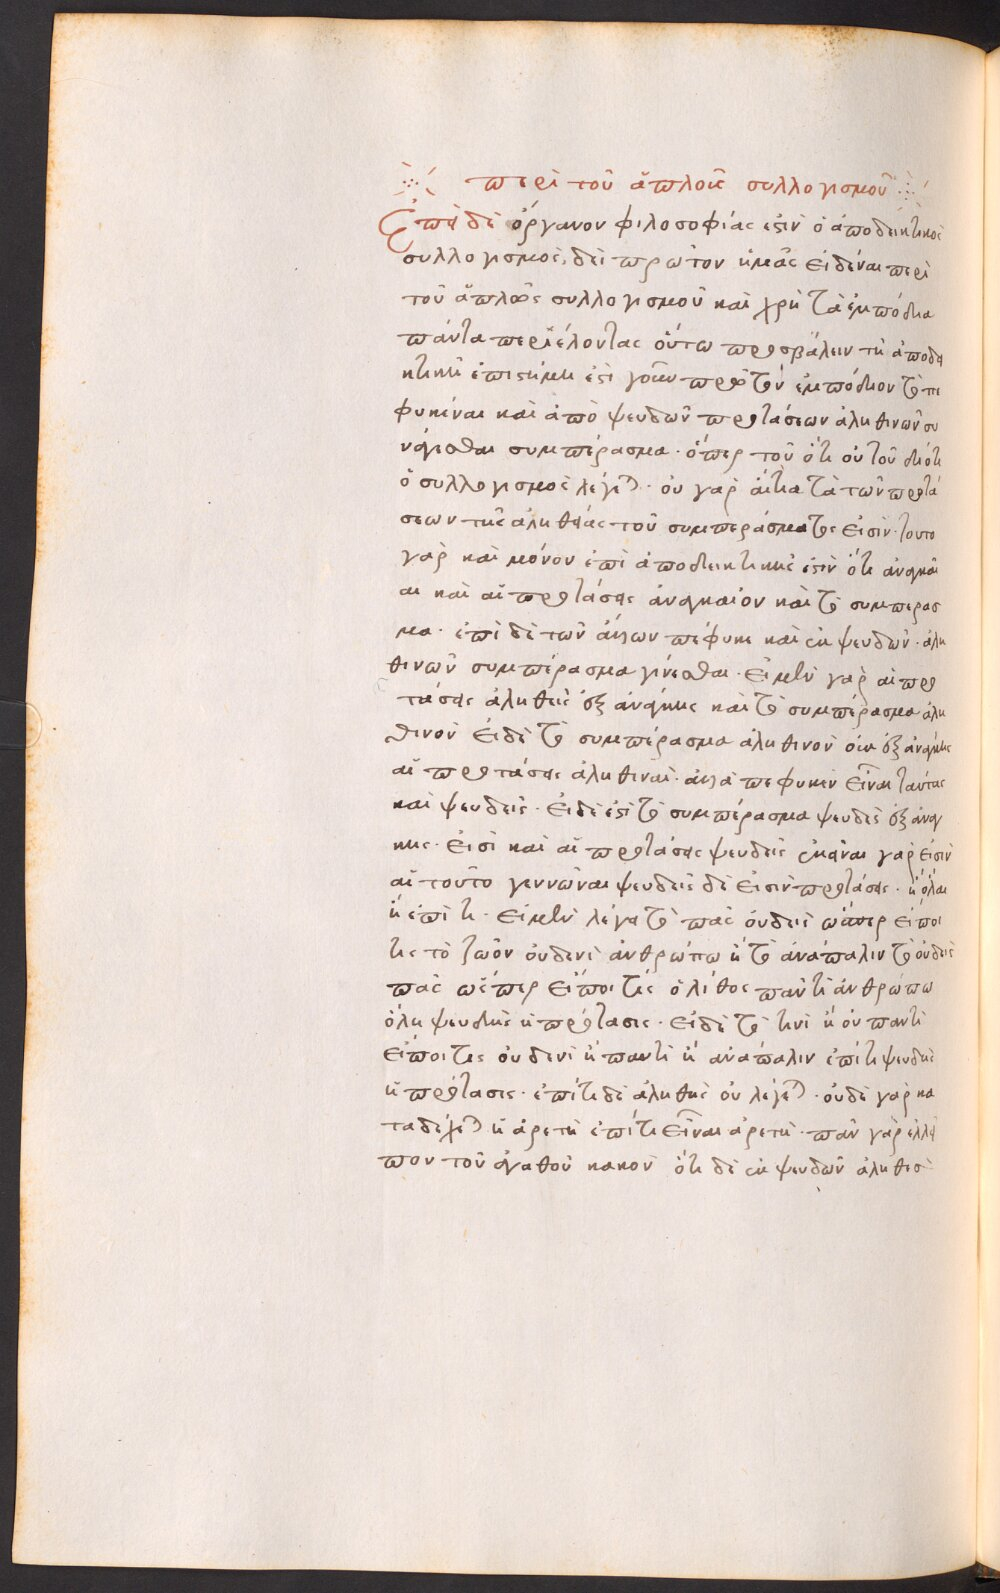 περὶ τοῦ ἁπλοῦ συλλογισμοῦ
Ἐπεὶ δὲ ὄργανον φιλοσοφίας ἐστὶν ὁ ἀποδεικτικὸς
συλλογισμὸς, δεῖ πρῶτον ἡμᾶς εἰδέναι περὶ
τοῦ ἁπλῶς συλλογισμοῦ καὶ χρὴ τὰ ἐμπόδια
πάντα περιελόντας οὕτω προσβάλειν τῇ ἀποδει
κτικῇ ἐπιστήμῃ ἐστὶ γοῦν πρῶτον ἐμπόδιον τὸ πε
φυκέναι καὶ ἀπὸ ψευδῶν προτάσεων ἀληθινὸν συ
νάγεσθαι συμπέρασμα· ὅπερ τοῦ ὅτι οὐ τοῦ διότι
ὁ συλλογισμὸς λέγεται· οὐ γὰρ αἴτια τὰ τῶν προτά
σεων τῆς ἀληθείας τοῦ συμπεράσματος εἰσίν· τοῦτο
γὰρ καὶ μόνον ἐπὶ ἀποδεικτικῆς ἐστὶν ὅτι ἀναγκαῖ
αι καὶ αἱ προτάσεις ἀναγκαῖον καὶ τὸ συμπερασ
μα· ἐπὶ δὲ τῶν ἄλλων πέφυκε καὶ ἐκ ψευδῶν· ἀλη
θινὸν συμπέρασμα γίνεσθαι· εἰ μὲν γὰρ αἱ προ
τάσεις ἀληθεῖς ἐξ ἀνάγκης καὶ τὸ συμπέρασμα ἀλη
θινὸν εἰ δὲ τὸ συμπέρασμα ἀληθινὸν οὐκ ἐξ ἀνάγκης
αἱ προτάσεις ἀληθιναί· ἀλλὰ πέφυκεν εἶναι ταύτας
καὶ ψευδεῖς· εἰ δὲ ἐστὶ τὸ συμπέρασμα ψευδὲς ἐξ ἀνάγ
κης· εἰσὶ καὶ αἱ προτάσεις ψευδεῖς ἐκεῖναι γὰρ εἰσὶν
αἱ τοῦτο γεννῶσαι ψευδεῖς δὲ εἰσὶν προτάσεις· ἢ ὅλαι
ἢ ἐπί τι· εἰ μὲν λέγει τὸ πᾶς οὐδεὶς ὥσπερ εἴποι
τις τὸ ζῶον οὐδενὶ ἀνθρώπω ἢ τὸ ἀνάπαλιν τὸ οὐδεὶς
πᾶς ὥσπερ εἴποι τις ὁ λίθος παντὶ ἀνθρώπω
ὅλη ψευδὴς ἡ πρότασις· εἰ δὲ τὸ τινὶ ἢ οὐ παντὶ
εἴποι τις οὐδενὶ ἢ παντὶ ἢ ἀνάπαλιν ἐπί τι ψευδὴς
ἡ πρότασις· ἐπί τι δὲ ἀληθὴς οὐ λέγεται· οὐδὲ γὰρ κα
ταδέχεται ἡ ἀρετὴ ἐπί τι εἶναι ἀρετή· πᾶν γὰρ ἐλλεῖ
πον τοῦ ἀγαθοῦ κακὸν ὅτι δὲ ἐκ ψευδῶν ἀληθὲς